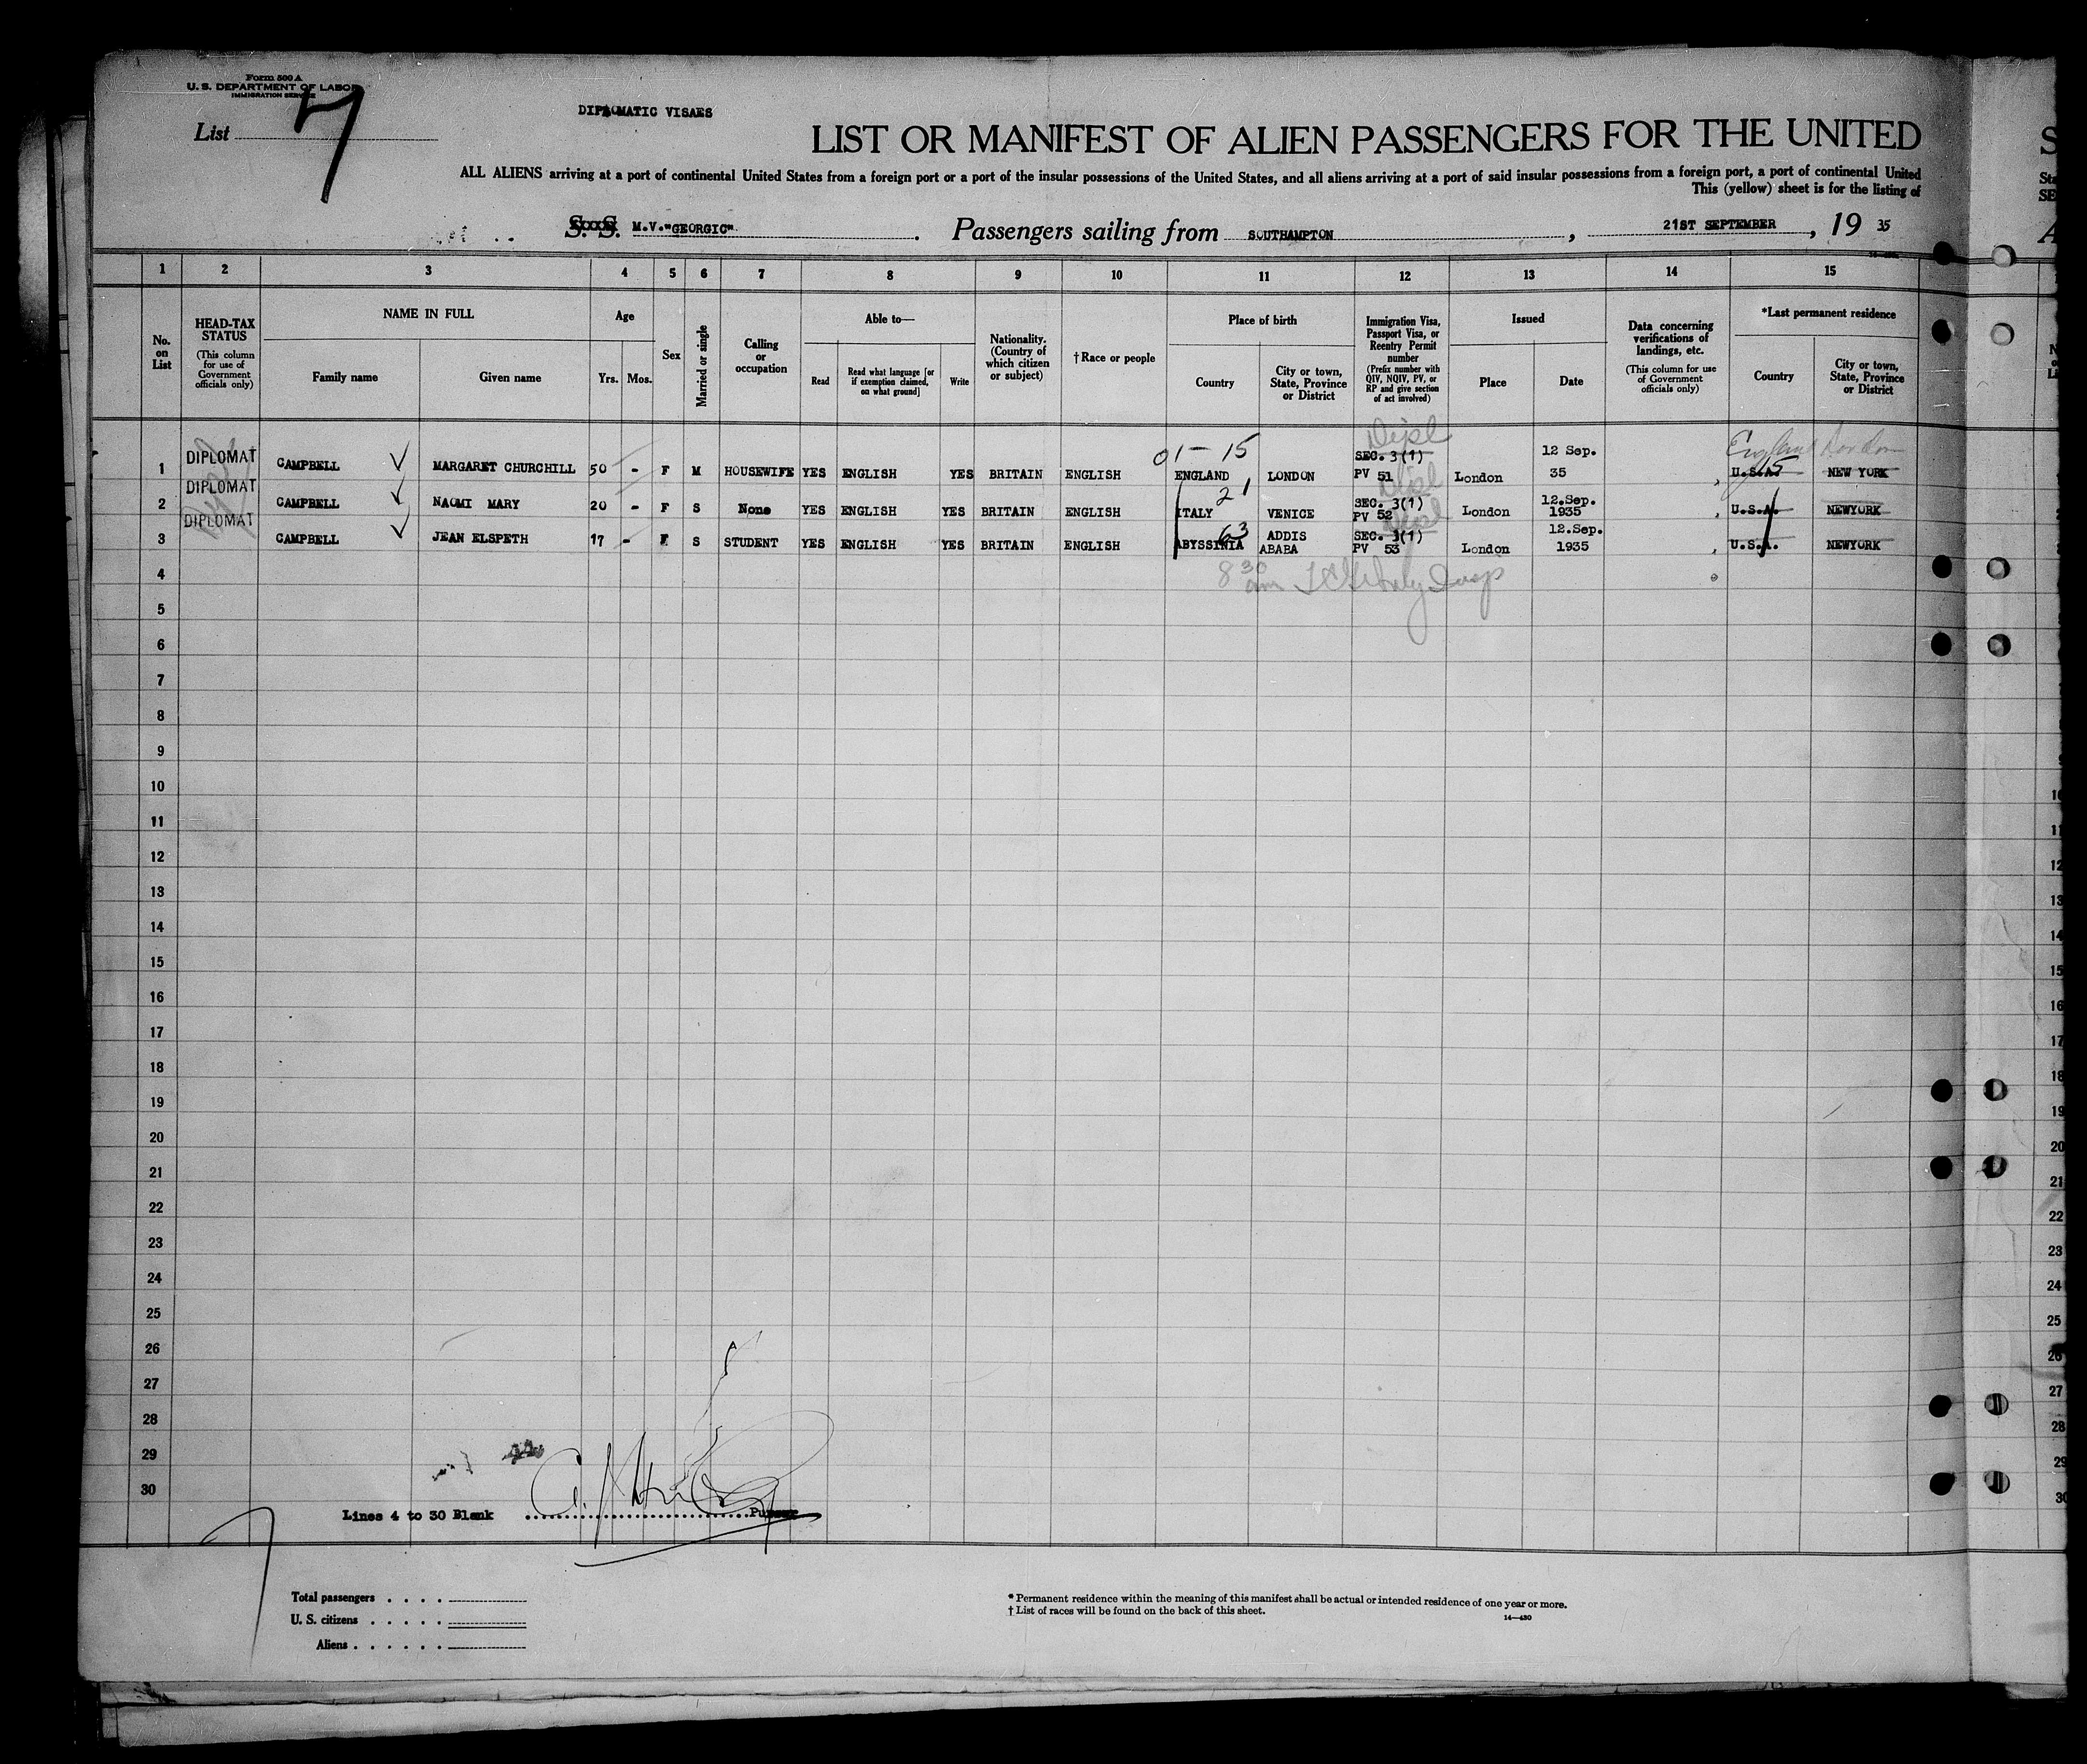 Form 500 A
U. S. DEPARTMENT OF LABOR
IMMIGRATION SERVICE
List 7
DIPLOMATIC VISAES
LIST OR MANIFEST OF ALIEN PASSENGERS FOR THE UNITED
ALL ALIENS arriving at a port of continental United States from a foreign port or a port of the insular possessions of the United States, and all aliens arriving at a port of said insular possessions from a foreign port, a port of continental United
This (yellow) sheet is for the listing of
S. S. M.V."GEORGIC". Passengers sailing from SOUTHAMPTON, 21ST SEPTEMBER, 19 35
1 2 3 4 5 6 7 8 9 10 11 12 13 14 15
No. on List
HEAD-TAX STATUS
(This column for use of Government officials only)
NAME IN FULL
Family name
Given name
Age
Yrs. Mos.
Sex
Married or single
Calling or occupation
Able to—
Read
Read what language [or if exemption claimed, on what ground]
Write
Nationality. (Country of which citizen or subject)
†Race or people
Place of birth
Country
City or town, State, Province or District
Immigration Visa, Passport Visa, or Reentry Permit number
(Prefix number with QIV, NQIV, PV, or RP and give section of act involved)
Issued
Place
Date
Data concerning verifications of landings, etc.
(This column for use of Government officials only)
*Last permanent residence
Country
City or town, State, Province or District
01 - 15 Dipl England London
1 DIPLOMAT CAMPBELL MARGARET CHURCHILL 50 - F M HOUSEWIFE YES ENGLISH YES BRITAIN ENGLISH ENGLAND LONDON SEC. 3(1) PV 51 London 12 Sep. 35 U.S.A. NEW YORK
15
21 Dipl
2 DIPLOMAT CAMPBELL NAOMI MARY 20 - F S None YES ENGLISH YES BRITAIN ENGLISH ITALY VENICE SEC. 3(1) PV 52 London 12.Sep. 1935 U.S.A. NEWYORK
63 Dipl
3 DIPLOMAT CAMPBELL JEAN ELSPETH 17 - F S STUDENT YES ENGLISH YES BRITAIN ENGLISH ABYSSINIA ADDIS ABABA SEC. 3(1) PV 53 London 12.Sep. 1935 U.S.A. NEWYORK
4 8 30 am Insp
5
6
7
8
9
10
11
12
13
14
15
16
17
18
19
20
21
22
23
24
25
26
27
28
29
30
Lines 4 to 30 Blank Purser
Total passengers
U. S. citizens
Aliens
* Permanent residence within the meaning of this manifest shall be actual or intended residence of one year or more.
† List of races will be found on the back of this sheet.
14—480